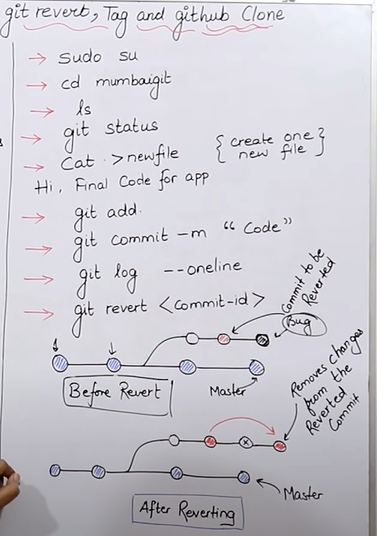 git revert, Tag and github Clone
→ sudo su
→ cd mumbaigit
→ ls
→ git status
→ Cat > newfile { create one new file }
Hi, Final Code for app
→ git add.
→ git commit -m "Code"
→ git log --oneline
→ git revert <commit-id>
Commit to be Reverted
Bug
Before Revert
Master
Removes changes from the Reverted Commit
Master
After Reverting